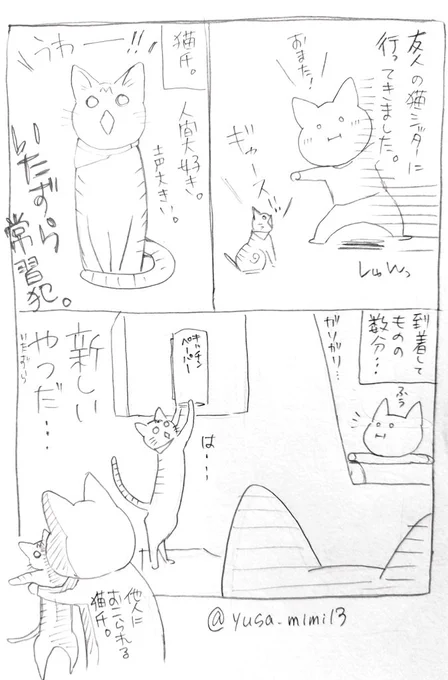 友人の猫シッターに
行ってきました。
おまた!
ギャース!!
しゅんっ
猫氏。
人間大好き。
声大きい。
うわーー!!
いたずら
常習犯。
到着して
ものの
数分…
ふぅ
ガリガリ…
キッチン
ペーパー
は…
新しい
やつだ…
いたずら
他人に
おこられる
猫氏。
@yusa_mimi13